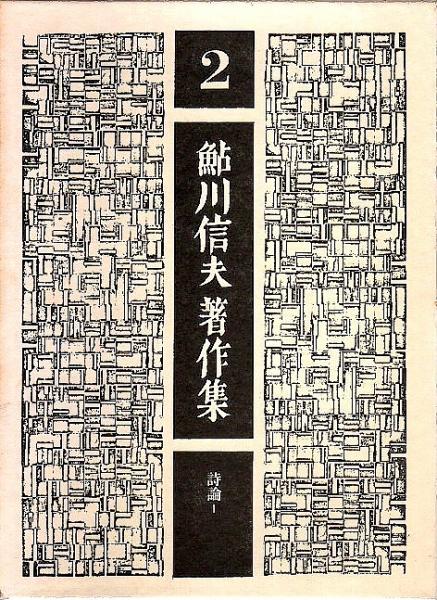 2
鮎川信夫著作集
詩論 I